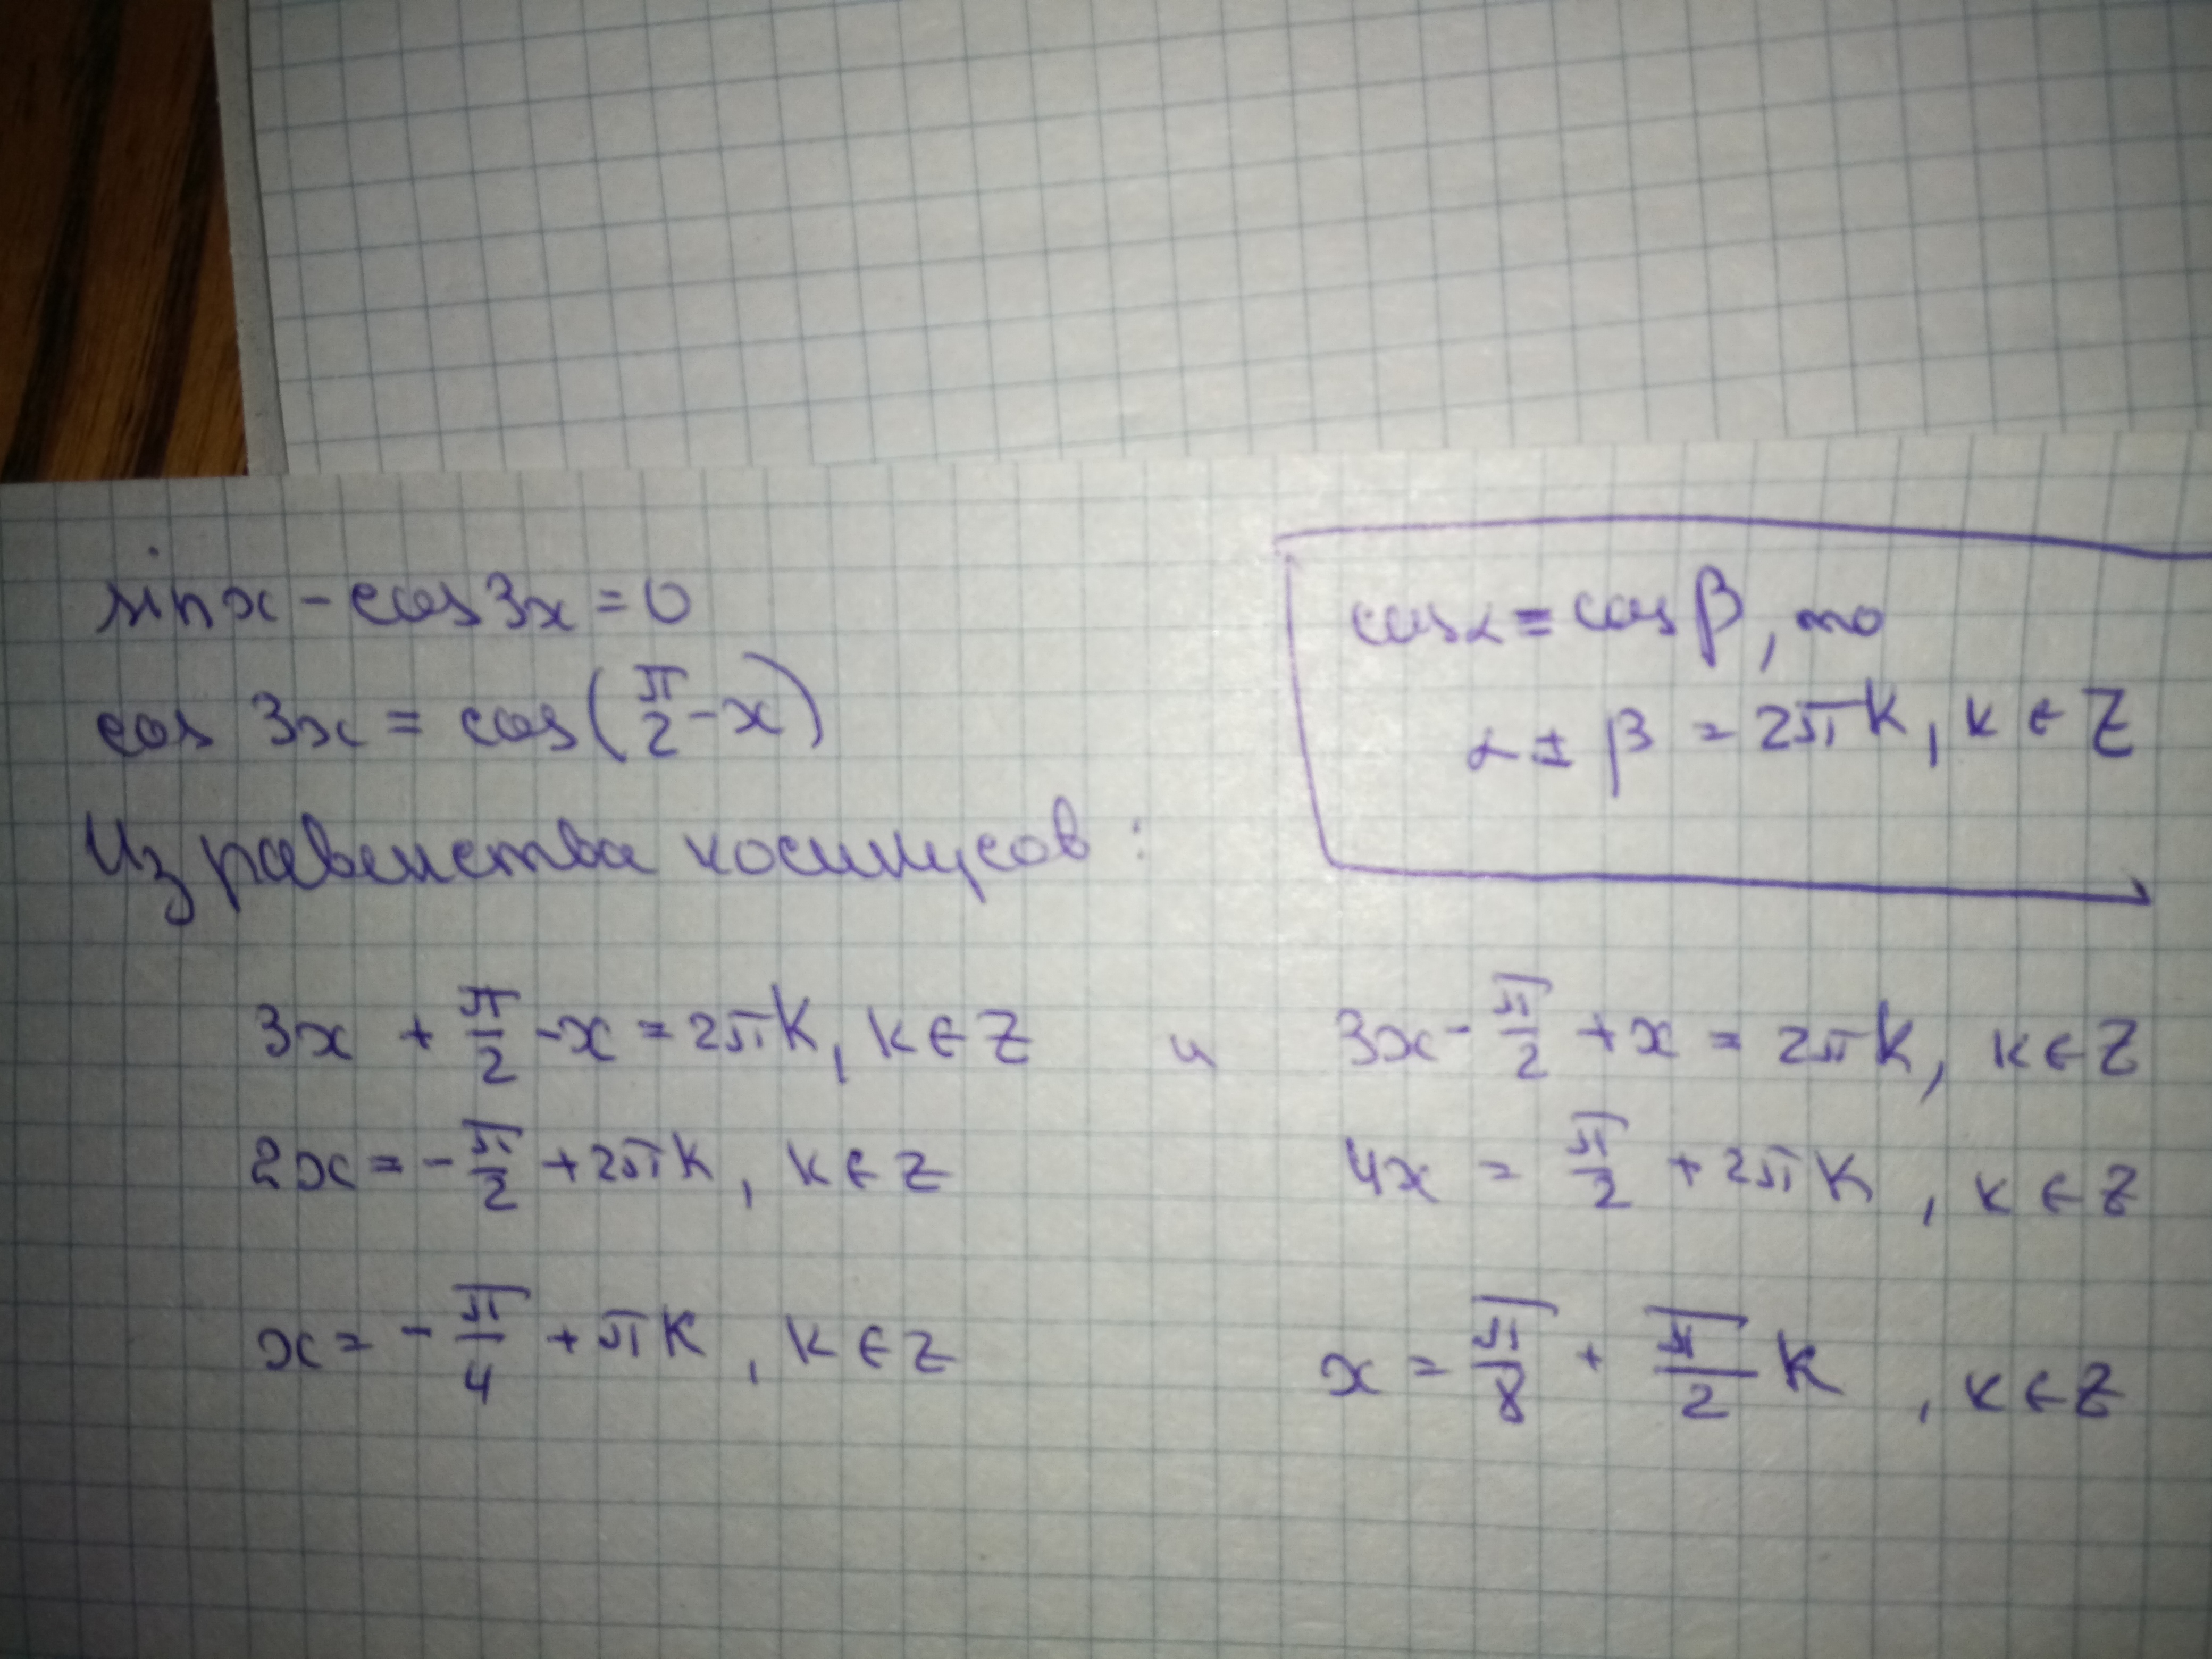 sinx - cos3x = 0
cos 3x = cos(π/2 - x)
Из равенства косинусов:
cosα = cosβ, то
α ± β = 2πk, k ∈ Z
3x + π/2 - x = 2πk, k ∈ Z и 3x - π/2 + x = 2πk, k ∈ Z
2x = - π/2 + 2πk, k ∈ Z 4x = π/2 + 2πk, k ∈ Z
x = - π/4 + πk, k ∈ Z x = π/8 + π/2 k, k ∈ Z